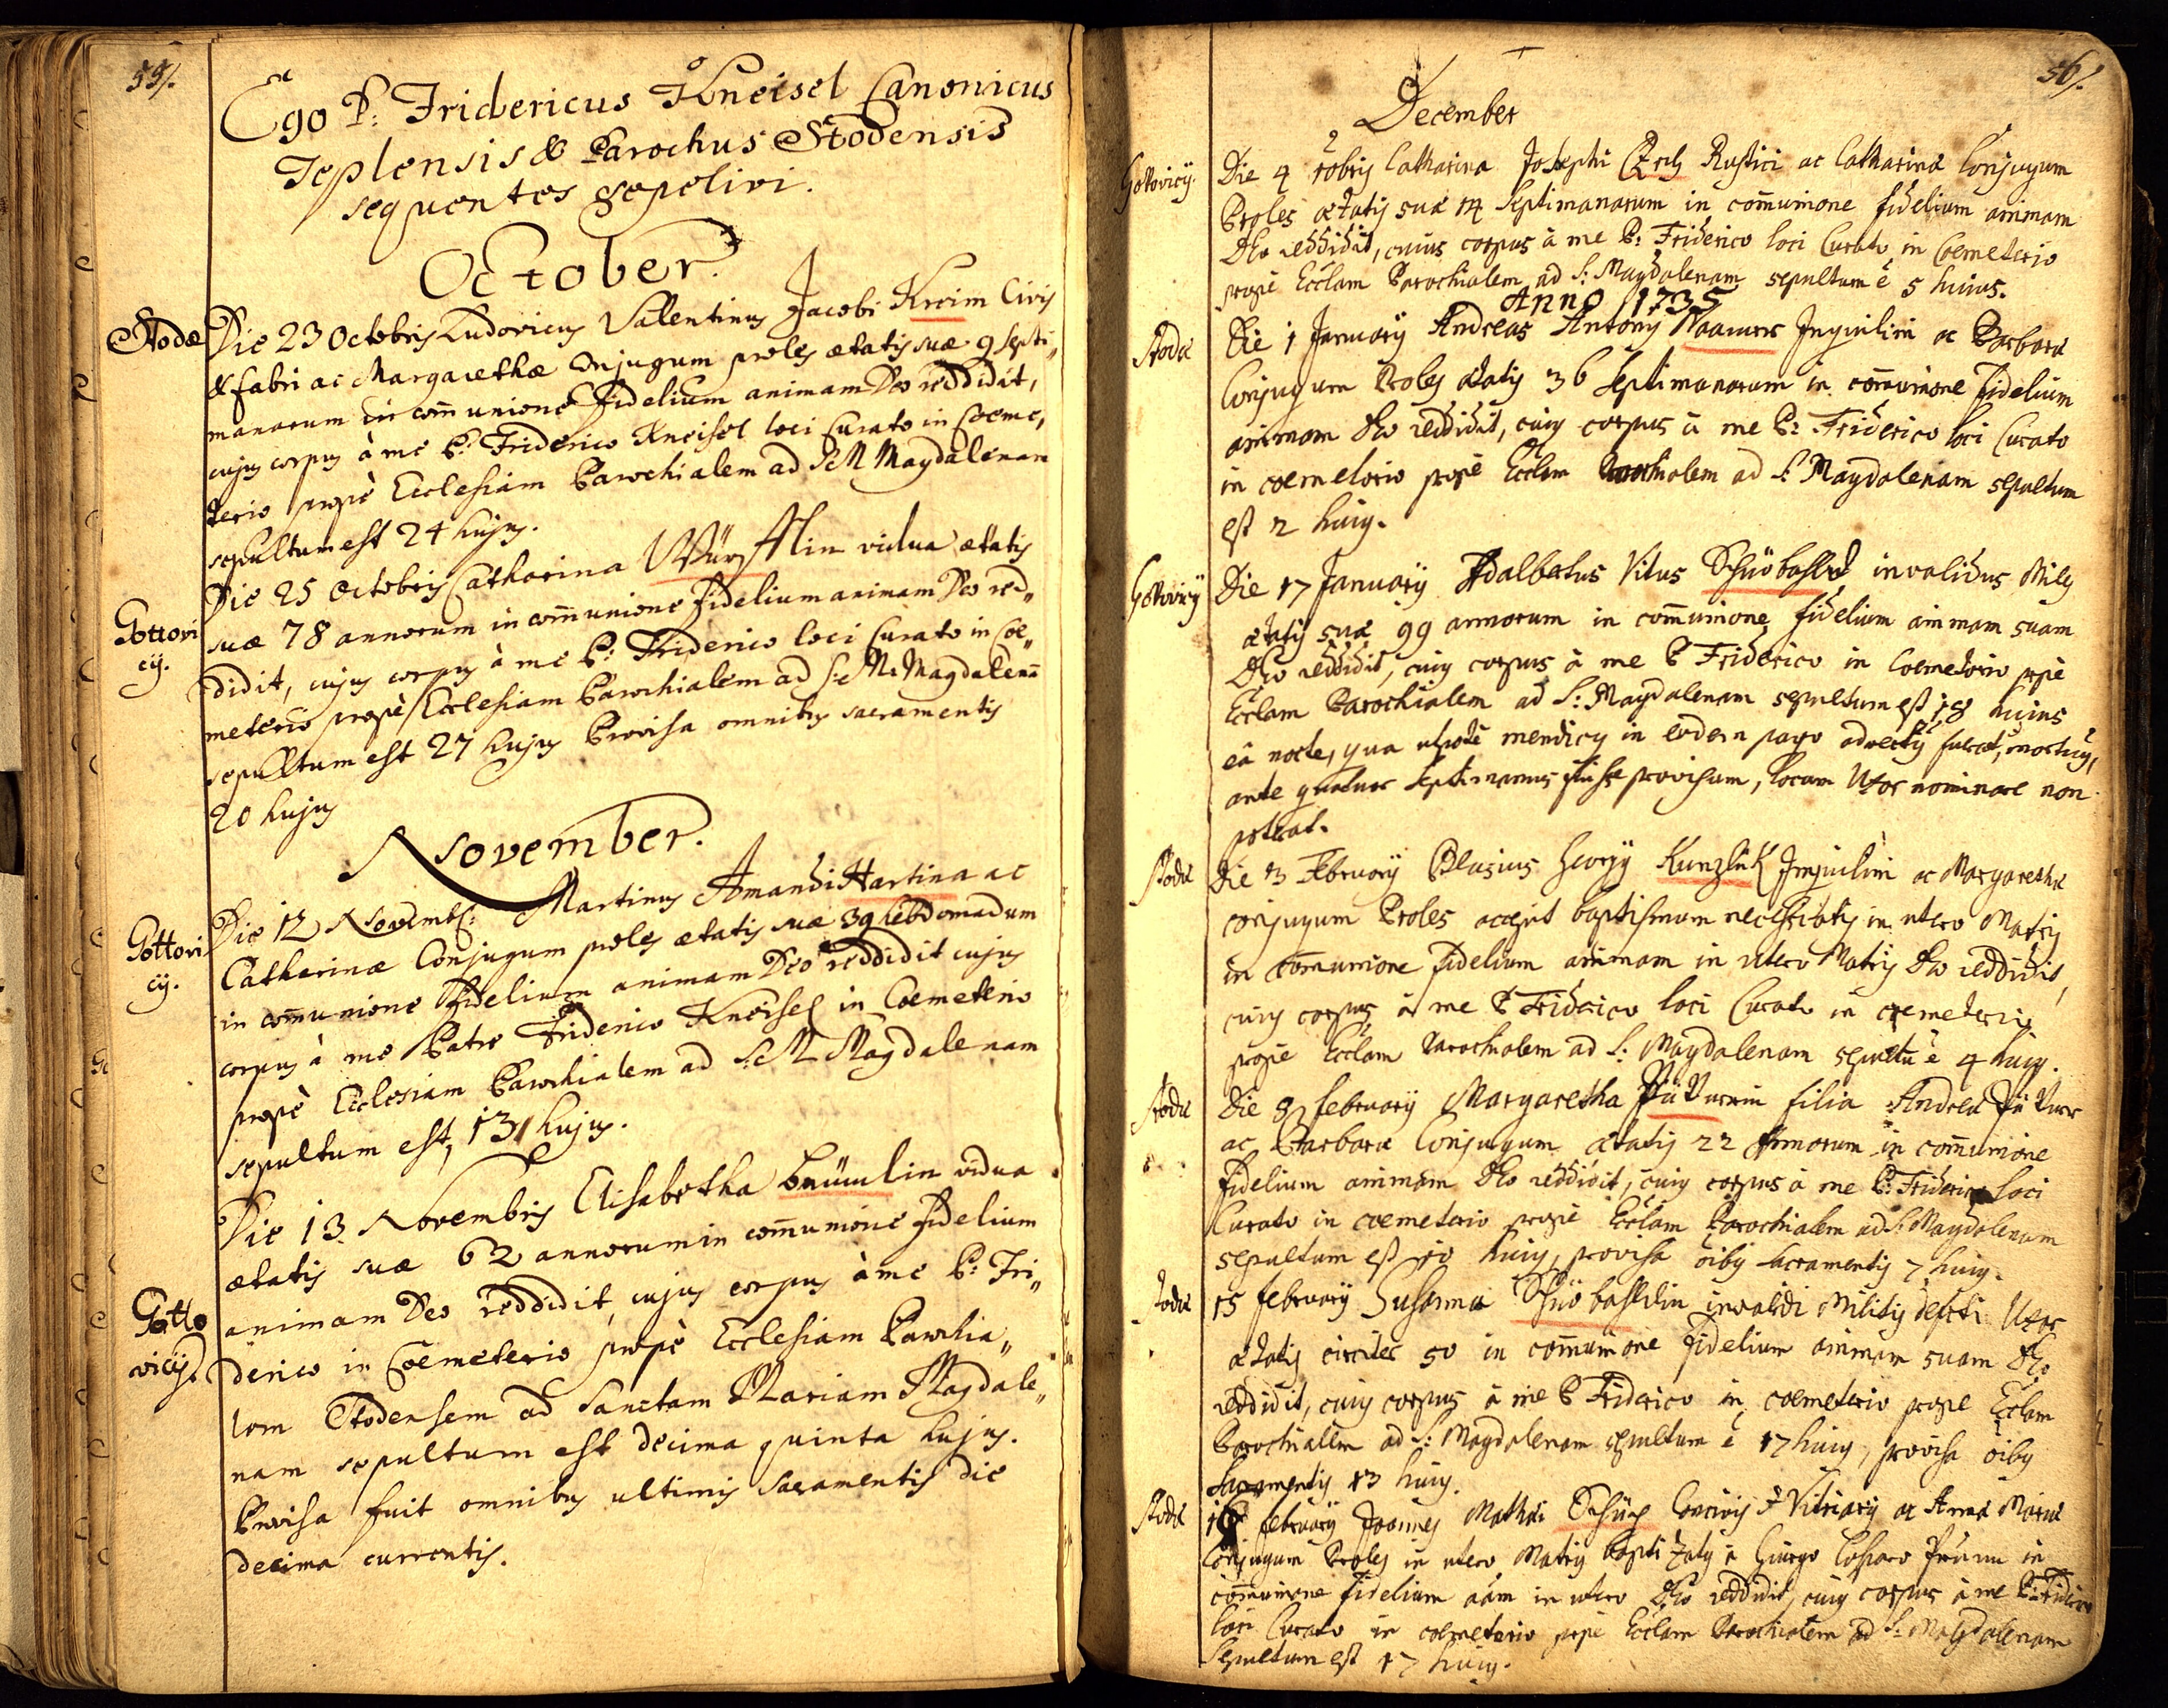 55/.
Ego P: Fridericus Kneisel Canonicus
Teplensis & Parochus Stodensis
sequentes sepelivi.
October.
Stodæ
Die 23 Octobris Ludovicus Valentinus Jacobi Kreim Civis
& fabri ac Margarethæ Conjugum proles ætatis suæ 9 septi„
manarum in com̄unione Fidelium animam Deo reddidit,
cujus corpus à me P: Friderico Kneisel loci Curato in Coeme,
terio propè Ecclesiam Parochialem ad S: M Magdalenam
sepultum est 24 hujus.
Gottovi
cÿ.
Die 25 Octobris Catharina Würfflin vidua ætatis
suæ 78 annorum in com̄unione fidelium animam Deo red„
didit, cujus corpus à me P: Friderico loci Curato in Coe„
meterio propè Ecclesiam Parochialem ad S: M: Magdalenā
sepultum est 27 hujus Provisa omnibus sacramentis
20 hujus
November.
Gottovi
cÿ.
Die 12 Novemb: Martinus Amandi Hartina ac
Catharinæ Conjugum proles ætatis suæ 39 hebdomadum
in com̄unione Fidelium animam Deo reddidit cujus
corpus à me Patre Friderico Kneisel in Coemeterio
propè Ecclesiam Parochialem ad S: M Magdalenam
sepultum est, 13 hujus.
Gotto
vicÿs.
Die 13 Novembris Elisabetha vidua
ætatis suæ 62 annorum in com̄unione Fidelium
animam Deo reddidit, cujus corpus à me P: Fri„
derico in Coemeterio propè Ecclesiam Parochia„
lem Stodensem ad Sanctam Mariam Magdale„
nam sepultum est decima quinta hujus.
Provisa fuit omnibus ultimis Sacramentis die
decima currentis.
56/.
December
Gottovicÿ.
Die 4 Xbris Catharina Josephi Rustici ac Catharinæ Conjugum
Proles ætatis suæ 14 Septimanarum in com̄unione fidelium animam
Deo reddidit, cuius corpus à me P: Friderico loci Curato in Coemeterio
prope Ecclam Parochialem ad S: Magdalenam sepultum ē 5 huius.
Anno 1735
Stodæ
Die 1 Januarÿ Andreas Antonÿ Inquilini ac Barbaræ
Conjugum Proles ætatis 36 Septimanarum in com̄unione Fidelium
animam Deo reddidit, cuius corpus à me P: Friderico loci Curato
in coemeterio prope Ecclam Parochialem ad S: Magdalenam sepultum
est 2 huius.
Gottovicÿ
Die 17 Januarÿ Adalbertus Vitus invalidus Miles
ætatis suæ 99 annorum in com̄unione fidelium animam suam
Deo reddidit, cuius corpus à me P Friderico in Coemeterio prope
Ecclam Parochialem ad S: Magdalenam sepultum est 18 huius
eâ nocte, qua utpote mendicus in eodem pago advectus fuerat, mortuus,
ante quatuor septimanas fuisse provisum, locum Uxor nominare non
poterat.
Stodæ
Die 3 Februarÿ Blasius Georgÿ Kunzluk Inquilini ac Margarethæ
conjugum Proles accepit baptismum necessitatis in utero Matris
in com̄unione fidelium animam in utero Matris Deo reddidit,
cuius corpus à me P Friderico loci Curato in coemeterio
prope Ecclam Parochialem ad S: Magdalenam sepultū ē 4 huius.
Stodæ
Die 8 februarÿ Margaretha filia Andreæ
ac Barbaræ Conjugum ætatis 22 Annorum in com̄unione
fidelium animam Deo reddidit, cuius corpus à me P: Friderico loci
Curato in coemeterio prope Ecclam Parochialem ad S: Magdalenam
sepultum est 10 huius, provisa oībus sacramentis 7 huius.
Stodæ
15 februarÿ Susanna invalidi Militis defcti Uxor
ætatis circiter 50 in com̄unione fidelium animam suam Deo
reddidit, cuius corpus à me P Friderico in coemeterio prope Ecclam
Parochialem ad S: Magdalenam sepultum ē 17 huius, provisa oībus
Sacramentis 13 huius.
Stodæ
16 februarÿ Joannes Mathæi Concivis & Vitriarÿ ac Annæ Mariæ
Conjugum Proles in utero Matris baptizatus à in
com̄unione fidelium aām in utero Deo reddidit, cuius corpus à me P: Friderico
loci Curato in coemeterio prope Ecclam Parochialem ad S: Magdalenam
Sepultum est 17 huius.